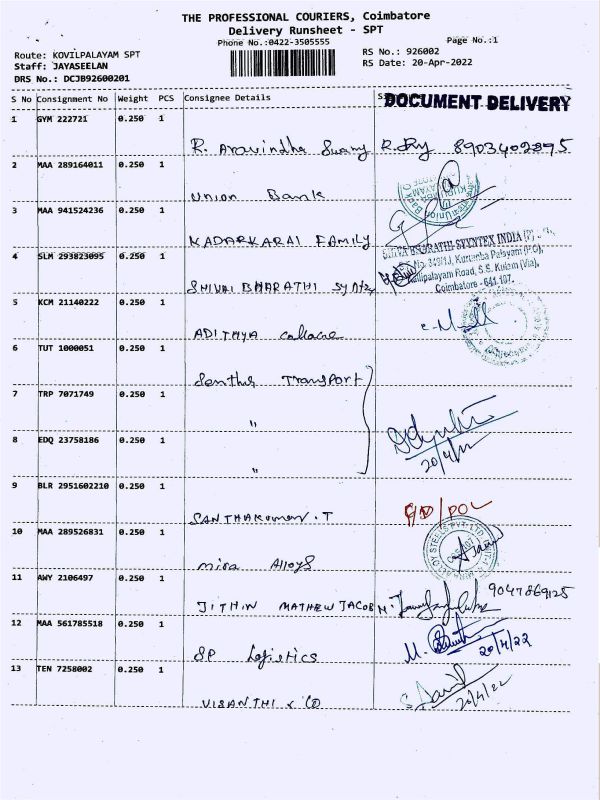 THE PROFESSIONAL COURIERS, Coimbatore
Delivery Runsheet - SPT
Phone No.:0422-3505555
Page No.:1
Route: KOVILPALAYAM SPT
Staff: JAYASEELAN
DRS No.: DCJB92600201
RS No.: 926002
RS Date: 20-Apr-2022
S No Consignment No Weight PCS Consignee Details
DOCUMENT DELIVERY
1 GYM 222721 0.250 1
R. Aravindha Swamy 8903402895
2 MAA 289164011 0.250 1
Union Bank
3 MAA 941524236 0.250 1
KADARKARAI FAMILY
4 SLM 293823095 0.250 1
BHARATHI SYNTEX INDIA
Kurumba Palayam (P.O),
Kalipalayam Road, S.S. Kulam (Via),
Coimbatore - 641 107.
BHARATHI
5 KCM 21140222 0.250 1
ADITHYA
6 TUT 1000051 0.250 1
Senthil Transport
7 TRP 7071749 0.250 1
"
8 EDQ 23758186 0.250 1
"
20/4/22
9 BLR 2951602210 0.250 1
SANTHAKUMAR.T
10 MAA 289526831 0.250 1
Mira Alloys
11 AWY 2106497 0.250 1
JITHIN MATHEW JACOB 9047869125
12 MAA 561785518 0.250 1
SP Logistics 20/4/22
13 TEN 7258002 0.250 1
VISANTHI & CO 20/4/22